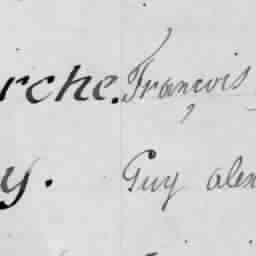 rche. François
y. Guy alex